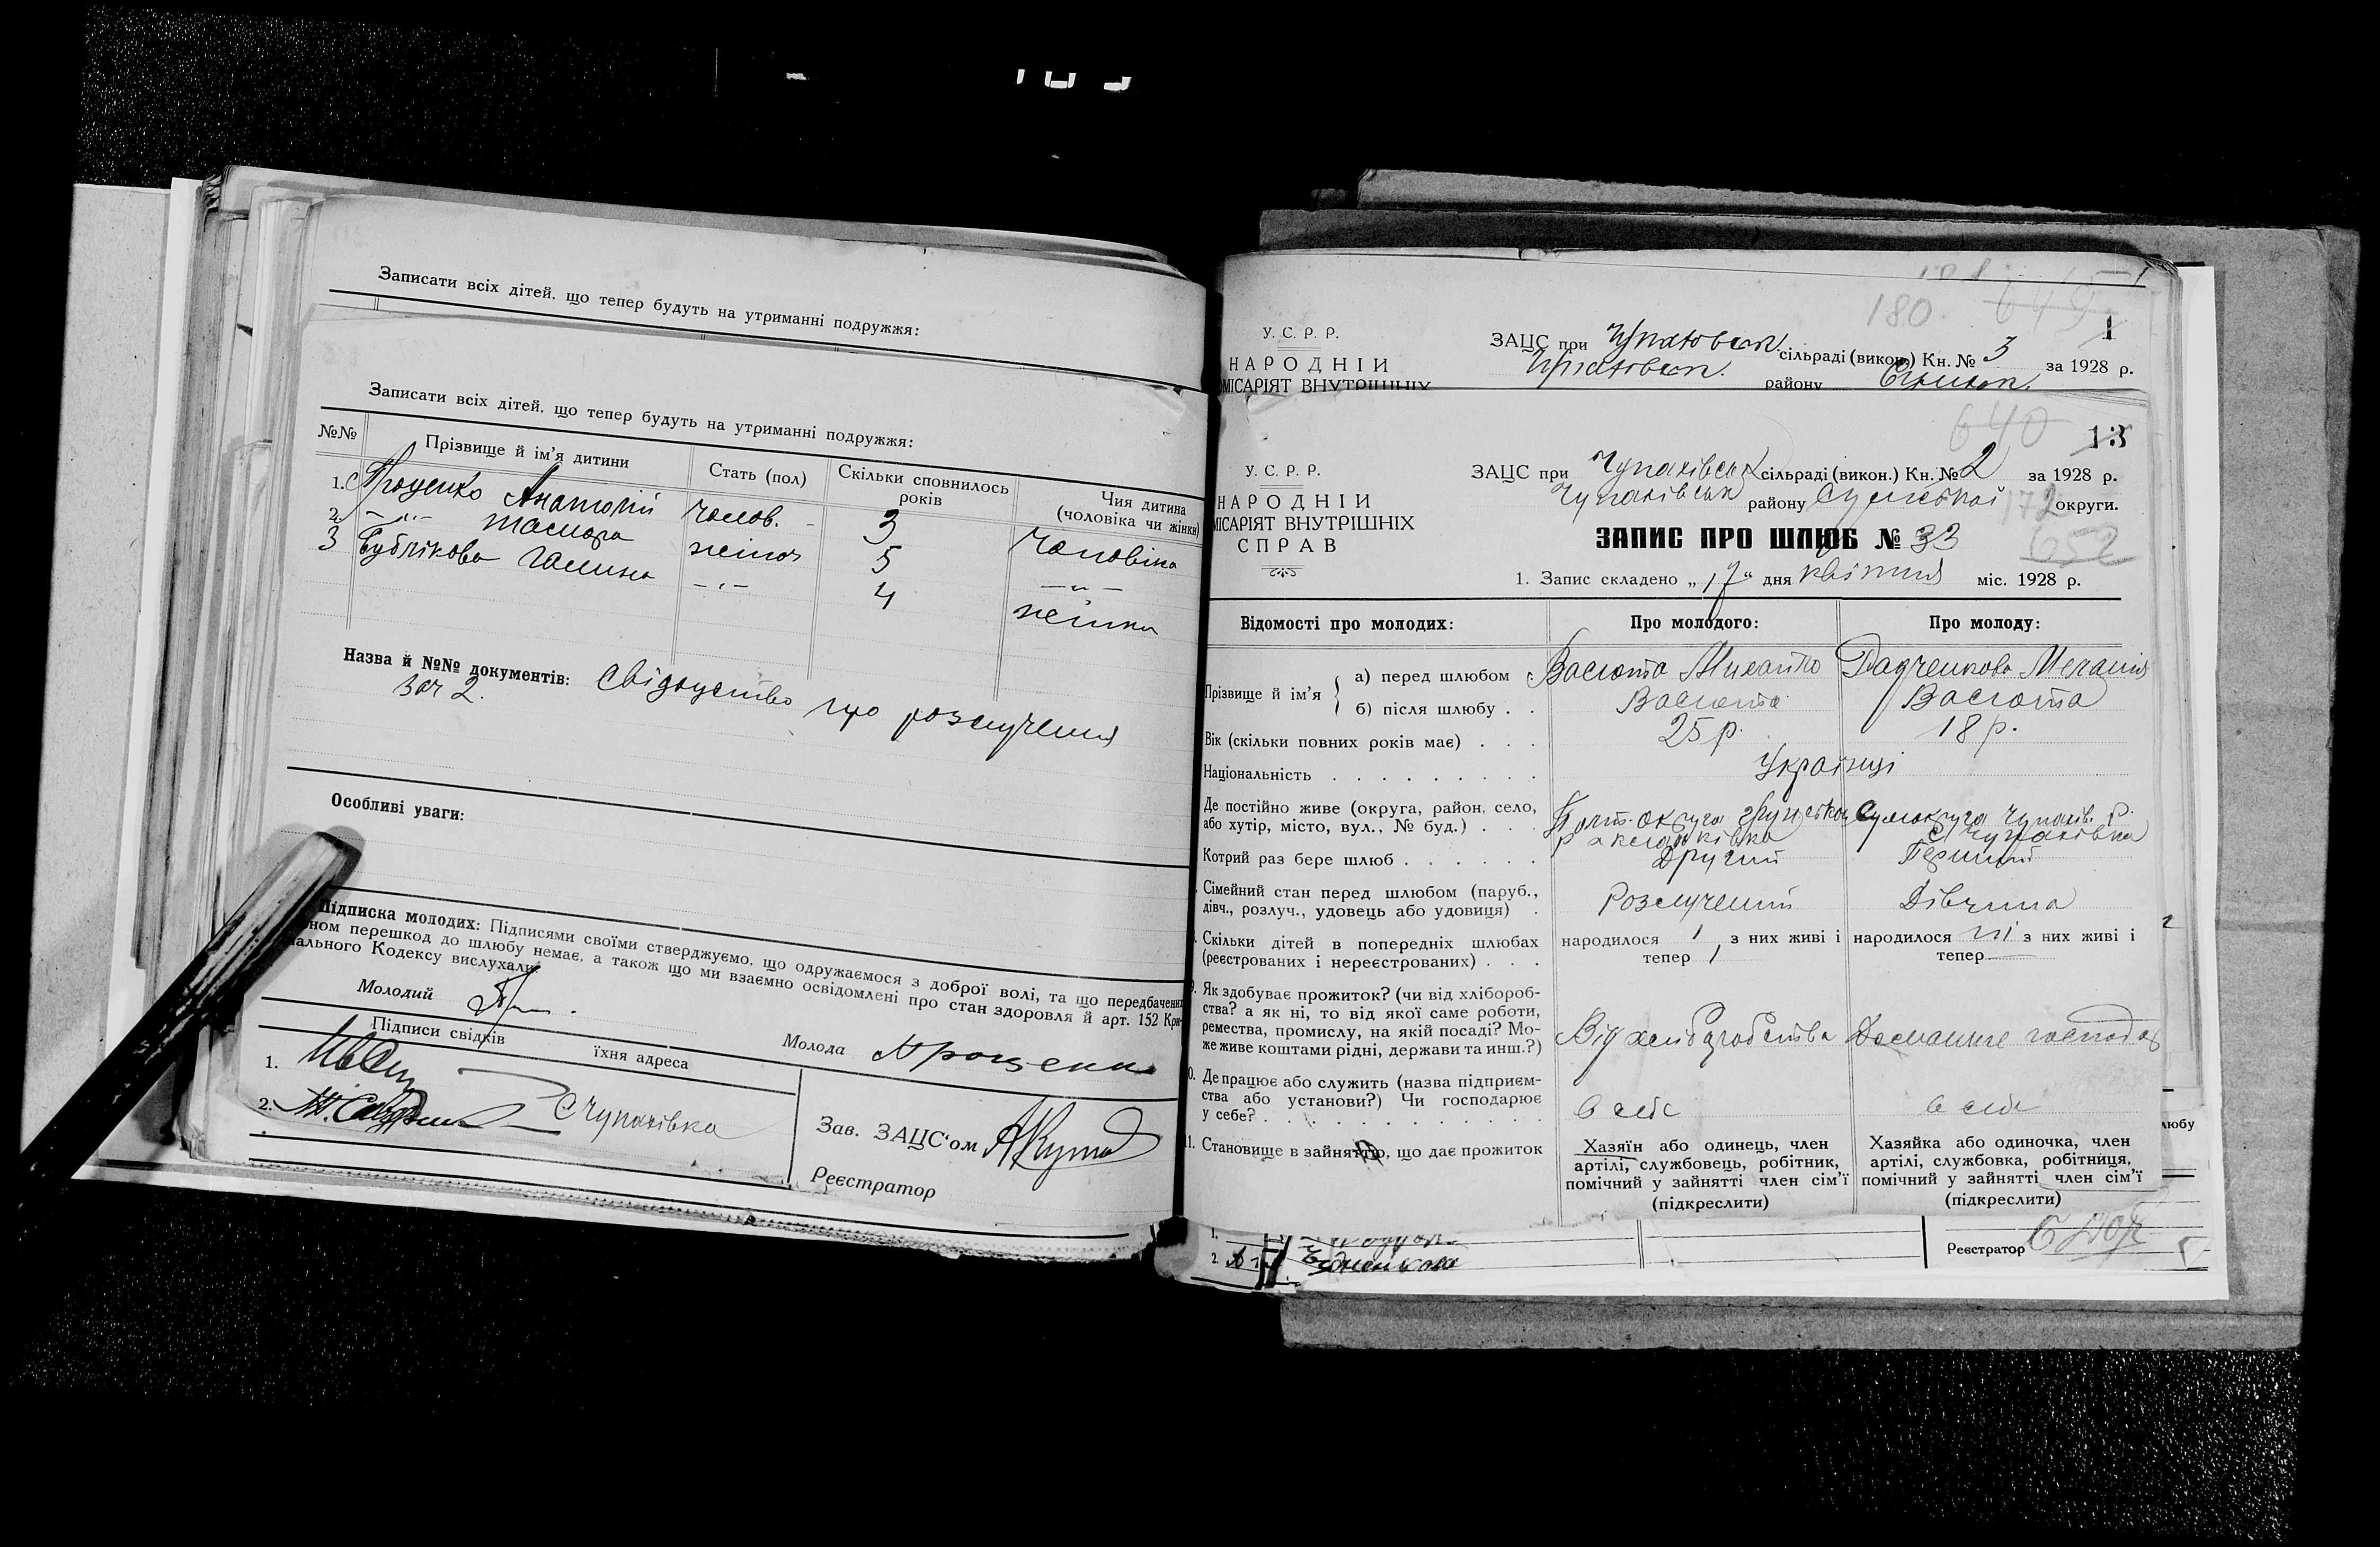 Записати всіх дітей, що тепер будуть на утриманні подружжя:
Записати всіх дітей, що тепер будуть на утриманні подружжя:
№№ Прізвище й ім'я дитини Стать (пол) Скільки сповнилось років Чия дитина (чоловіка чи жінки)
1. Проценко Анатолій чолов. 3 чоловіка
2. -"- Тамара жіноч 5 -"-
3 Бублікова Галина -"- 4 жінки
Назва й №№ документів: Свідоцтво про розлучення
за 2.
Особливі уваги:
Підписка молодих: Підписями своїми стверджуємо, що одружаємося з доброї волі, та що передбачених
ном перешкод до шлюбу немає, а також що ми взаємно освідомлені про стан здоровля й арт. 152 Кри-
ального Кодексу вислухали
Молодий
Молода Проценко
Підписи свідків їхня адреса
1.
2. С Чупахівка
Зав. ЗАЦС'ом
Реєстратор
180
У. С. Р. Р.
НАРОДНІЙ
МІСАРІЯТ ВНУТРІШНІХ
1
ЗАЦС при сільраді (викон.) Кн. № 3 за 1928 р.
району
640 13
У. С. Р. Р.
НАРОДНІЙ
МІСАРІЯТ ВНУТРІШНІХ
СПРАВ
ЗАЦС при Чупахівськ сільраді (викон.) Кн. № 2 за 1928 р.
Чупахівськ району Сумської округи.
172
652
ЗАПИС ПРО ШЛЮБ № 33
1. Запис складено „17" дня квітня міс. 1928 р.
Відомості про молодих: Про молодого: Про молоду:
Прізвище й ім'я { а) перед шлюбом Васюта Михайло Радченкова Меланія
б) після шлюбу . . Васюта Васюта
Вік (скільки повних років має) . . . 25 р. 18 р.
Національність . . . . . . . . . Українці
Де постійно живе (округа, район, село, Полт. округа Грунської Сумокруга Чупахів. р.
або хутір, місто, вул., № буд.) . . . р С Чупахівка
Котрий раз бере шлюб . . . . . . Другий Перший
Сімейний стан перед шлюбом (паруб., Розлучений Дівчина
дівч., розлуч., удовець або удовиця) .
Скільки дітей в попередніх шлюбах народилося 1, з них живі і народилося ні з них живі і
(реєстрованих і нереєстрованих) . . . тепер 1 тепер —
9. Як здобуває прожиток? (чи від хлібороб-
ства? а як ні, то від якої саме роботи,
ремества, промислу, на якій посаді? Мо- Від хліборобства Домашнє господар
же живе коштами рідні, держави та инш.?)
0. Де працює або служить (назва підприєм-
ства або установи?) Чи господарює
у себе? . . . . . . . . . . . . в себе в себе
11. Становище в зайняттю, що дає прожиток
Хазяїн або одинець, член артілі, службовець, робітник, помічний у зайнятті член сім'ї (підкреслити)
Хазяйка або одиночка, член артілі, службовка, робітниця, помічний у зайнятті член сім'ї (підкреслити)
любу
1.
2.
Реєстратор